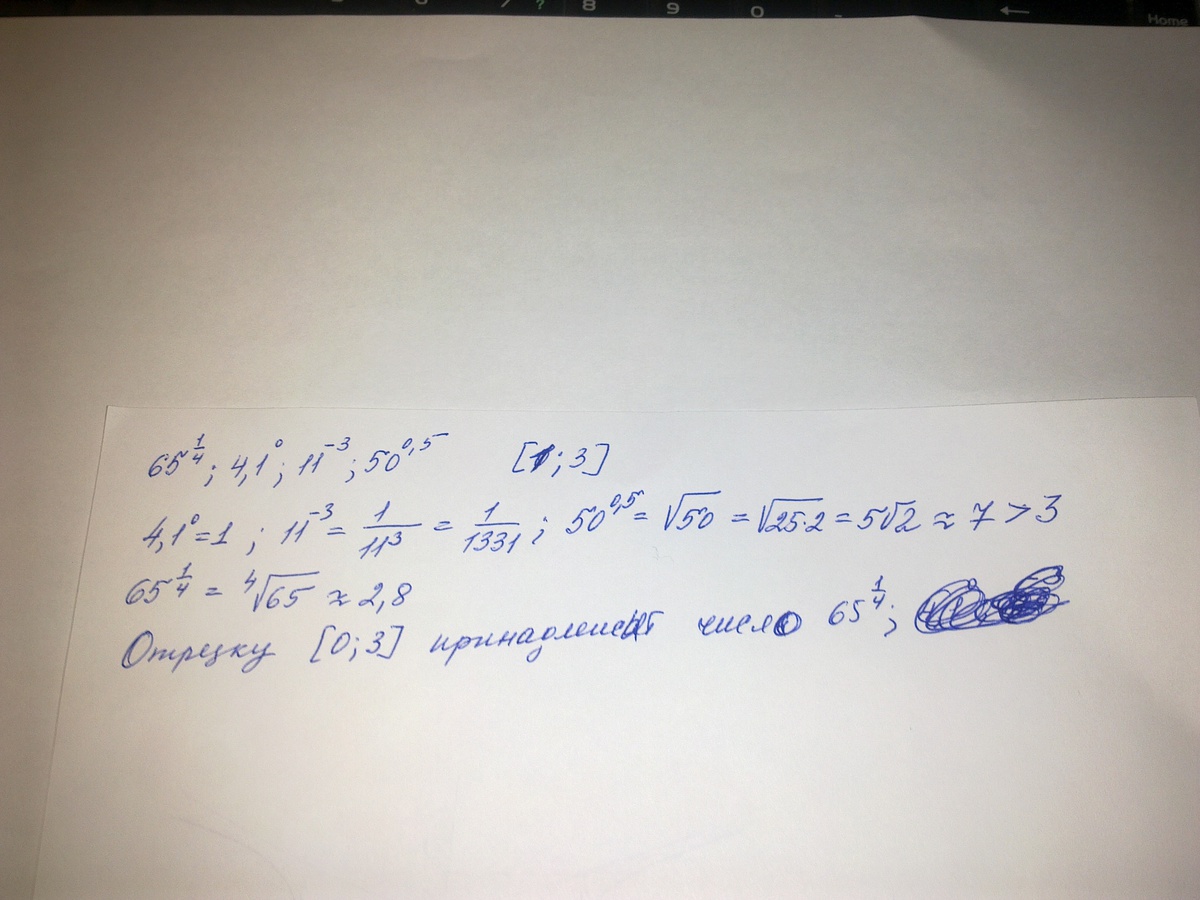 7 ? 8 9 0 - ← Home
65^{1/4}; 4,1^0; 11^{-3}; 50^{0,5} [1;3]
4,1^0 = 1; 11^{-3} = 1/11^3 = 1/1331; 50^{0,5} = √50 = √25·2 = 5√2 ≈ 7 > 3
65^{1/4} = ∜65 ≈ 2,8
Отрезку [0;3] принадлежит число 65^{1/4};